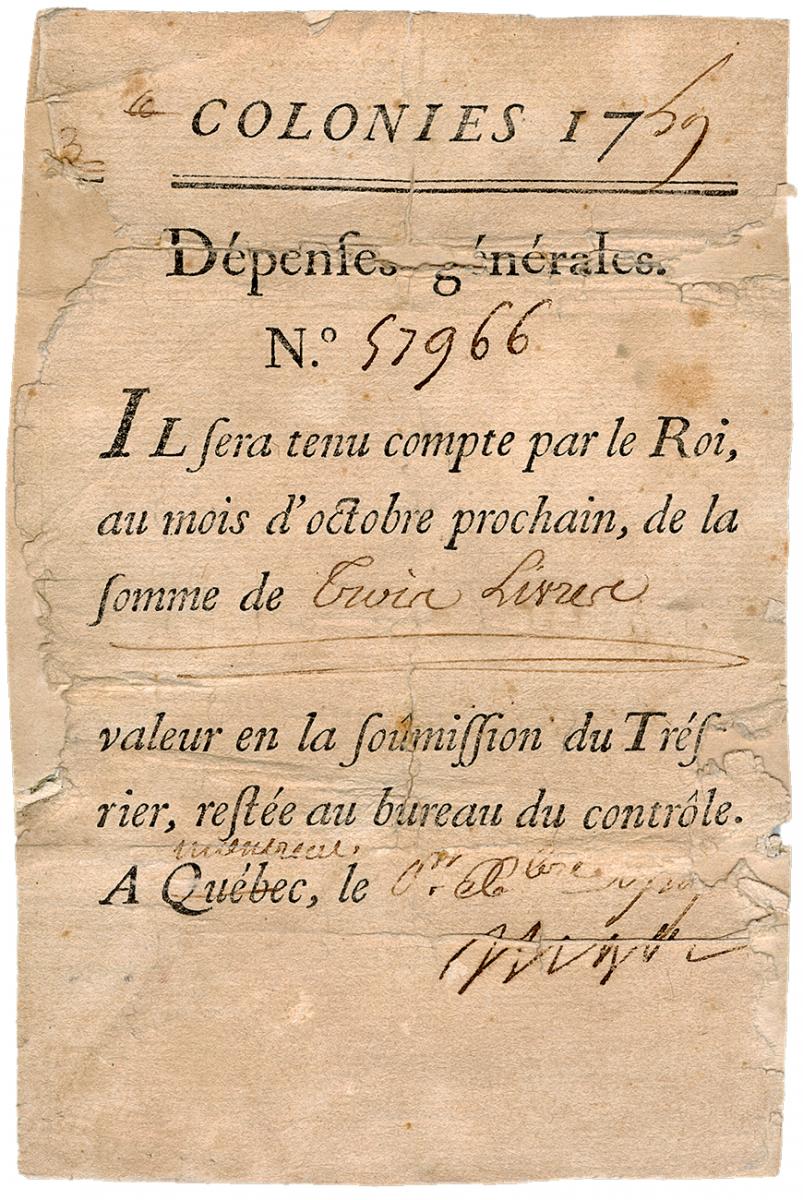 COLONIES 1759
3
Dépenſes générales.
N.º 57966
IL ſera tenu compte par le Roi,
au mois d'octobre prochain, de la
ſomme de Trois Livres
valeur en la ſoumiſſion du Tréſ-
rier, reſtée au bureau du contrôle.
montreal.
A Québec, le